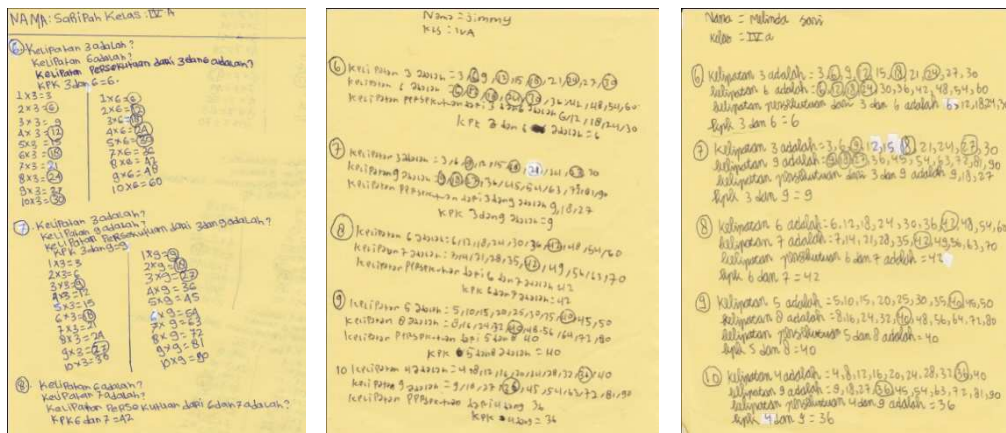 NAMA: SaRiPah Kelas: IV A
6 Kelipatan 3 adalah?
Kelipatan 6 adalah?
Kelipatan Persekutuan dari 3 dan 6 adalah?
KPK 3 dan 6 = 6
1x3=3
2x3=6
3x3=9
4x3=12
5x3=15
6x3=18
7x3=21
8x3=24
9x3=27
10x3=30
1x6=6
2x6=12
3x6=18
4x6=24
5x6=30
6x6=36
7x6=42
8x6=48
10x6=60
7 Kelipatan 3 adalah?
Kelipatan 9 adalah?
Kelipatan Persekutuan dari 3 dan 9 adalah?
KPK 3 dan 9=9
1x3=3
2x3=6
3x3=9
4x3=12
5x3=15
6x3=18
7x3=21
8x3=24
9x3=27
10x3=30
1x9=9
2x9=18
3x9=27
4x9=36
5x9=45
6x9=54
7x9=63
8x9=72
9x9=81
10x9=90
8 Kelipatan 6 adalah?
Kelipatan 7 adalah?
Kelipatan Persekutuan dari 6 dan 7 adalah?
KPK 6 dan 7 = 42
Nama = Jimmy
Kls = IVA
6 Kelipatan 3 adalah = 3,6,9,12,15,18,21,24,27,30
Kelipatan 6 adalah = 6,12,18,24,30,36,42,48,54,60
Kelipatan Persekutuan dari 3 dan 6 adalah 6,12,18,24,30
KPK 3 dan 6 adalah = 6
7 Kelipatan 3 adalah = 3,6,9,12,15,18,21,24,27,30
Kelipatan 9 adalah = 9,18,27,36,45,54,63,72,81,90
Kelipatan Persekutuan dari 3 dan 9 adalah 9,18,27
KPK 3 dan 9 adalah = 9
8 Kelipatan 6 adalah = 6,12,18,24,30,36,42,48,54,60
Kelipatan 7 adalah = 7,14,21,28,35,42,49,56,63,70
Kelipatan Persekutuan dari 6 dan 7 adalah 42
KPK 6 dan 7 adalah = 42
9 Kelipatan 5 adalah = 5,10,15,20,25,30,35,40,45,50
Kelipatan 8 adalah = 8,16,24,32,40,48,56,64,72,80
Kelipatan Persekutuan dari 5 dan 8 adalah = 40
KPK 5 dan 8 adalah = 40
10 Kelipatan 4 adalah = 4,8,12,16,20,24,28,32,36,40
Kelipatan 9 adalah = 9,18,27,36,45,54,63,72,81,90
Kelipatan Persekutuan dari 4 dan 9 36
KPK 4 dan 9 = 36
Nama = Melinda sari
Kelas = IV a
6 Kelipatan 3 adalah = 3,6,9,12,15,18,21,24,27,30
kelipatan 6 adalah = 6,12,18,24,30,36,42,48,54,60
kelipatan persekutuan dari 3 dan 6 adalah 6,12,18,24,30
kpk 3 dan 6 = 6
7 Kelipatan 3 adalah = 3,6,9,12,15,18,21,24,27,30
kelipatan 9 adalah = 9,18,27,36,45,54,63,72,81,90
kelipatan persekutuan dari 3 dan 9 adalah 9,18,27
kpk 3 dan 9 = 9
8 Kelipatan 6 adalah = 6,12,18,24,30,36,42,48,54,60
kelipatan 7 adalah = 7,14,21,28,35,42,49,56,63,70
kelipatan persekutuan 6 dan 7 adalah = 42
kpk 6 dan 7 = 42
9 Kelipatan 5 adalah = 5,10,15,20,25,30,35,40,45,50
kelipatan 8 adalah = 8,16,24,32,40,48,56,64,72,80
kelipatan persekutuan 5 dan 8 adalah = 40
kpk 5 dan 8 = 40
10 Kelipatan 4 adalah = 4,8,12,16,20,24,28,32,36,40
kelipatan 9 adalah = 9,18,27,36,45,54,63,72,81,90
kelipatan persekutuan 4 dan 9 adalah = 36
kpk 4 dan 9 = 36